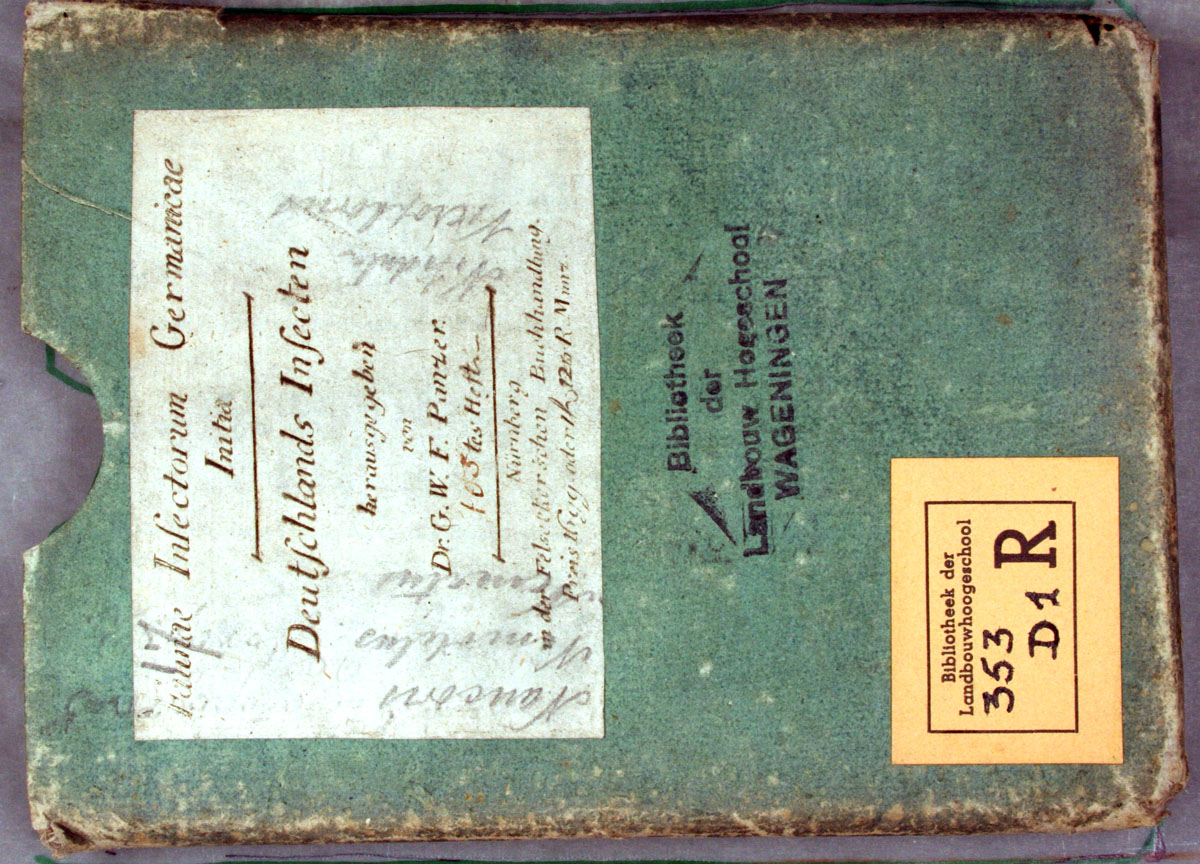 Faunae Inſectorum Germanicae
Initia
Deutſchlands Inſecten
herausgegeben
von
Dr. G. W. F. Panzer.
105tes Heft.
Nürnberg
in der Felseckerischen Buchhandlung.
Preis 12
Naucoris
Bibliotheek
der
Landbouw Hogeschool
WAGENINGEN
Bibliotheek der
Landbouwhoogeschool
353
D1 R